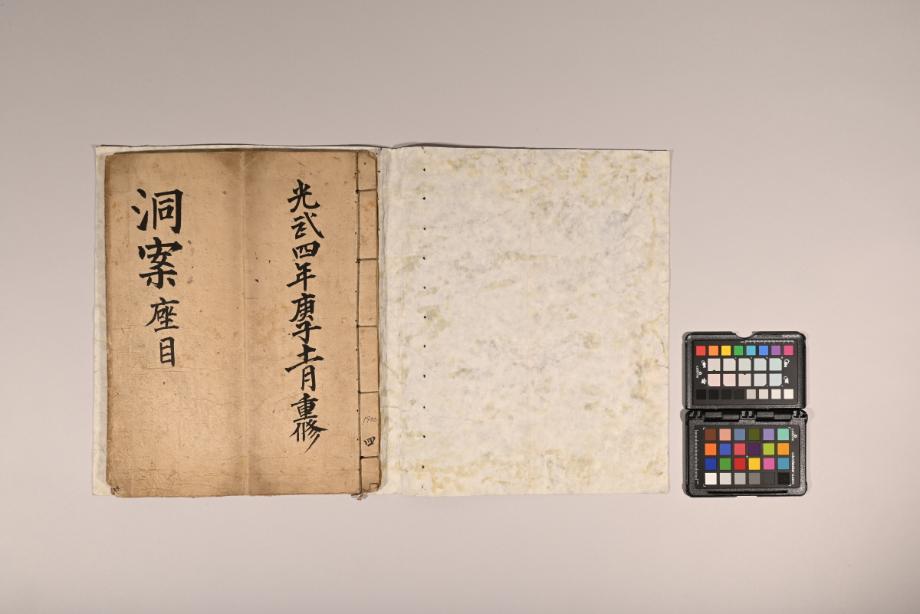 光武四年庚子十一月重修
洞案座目
1900
四